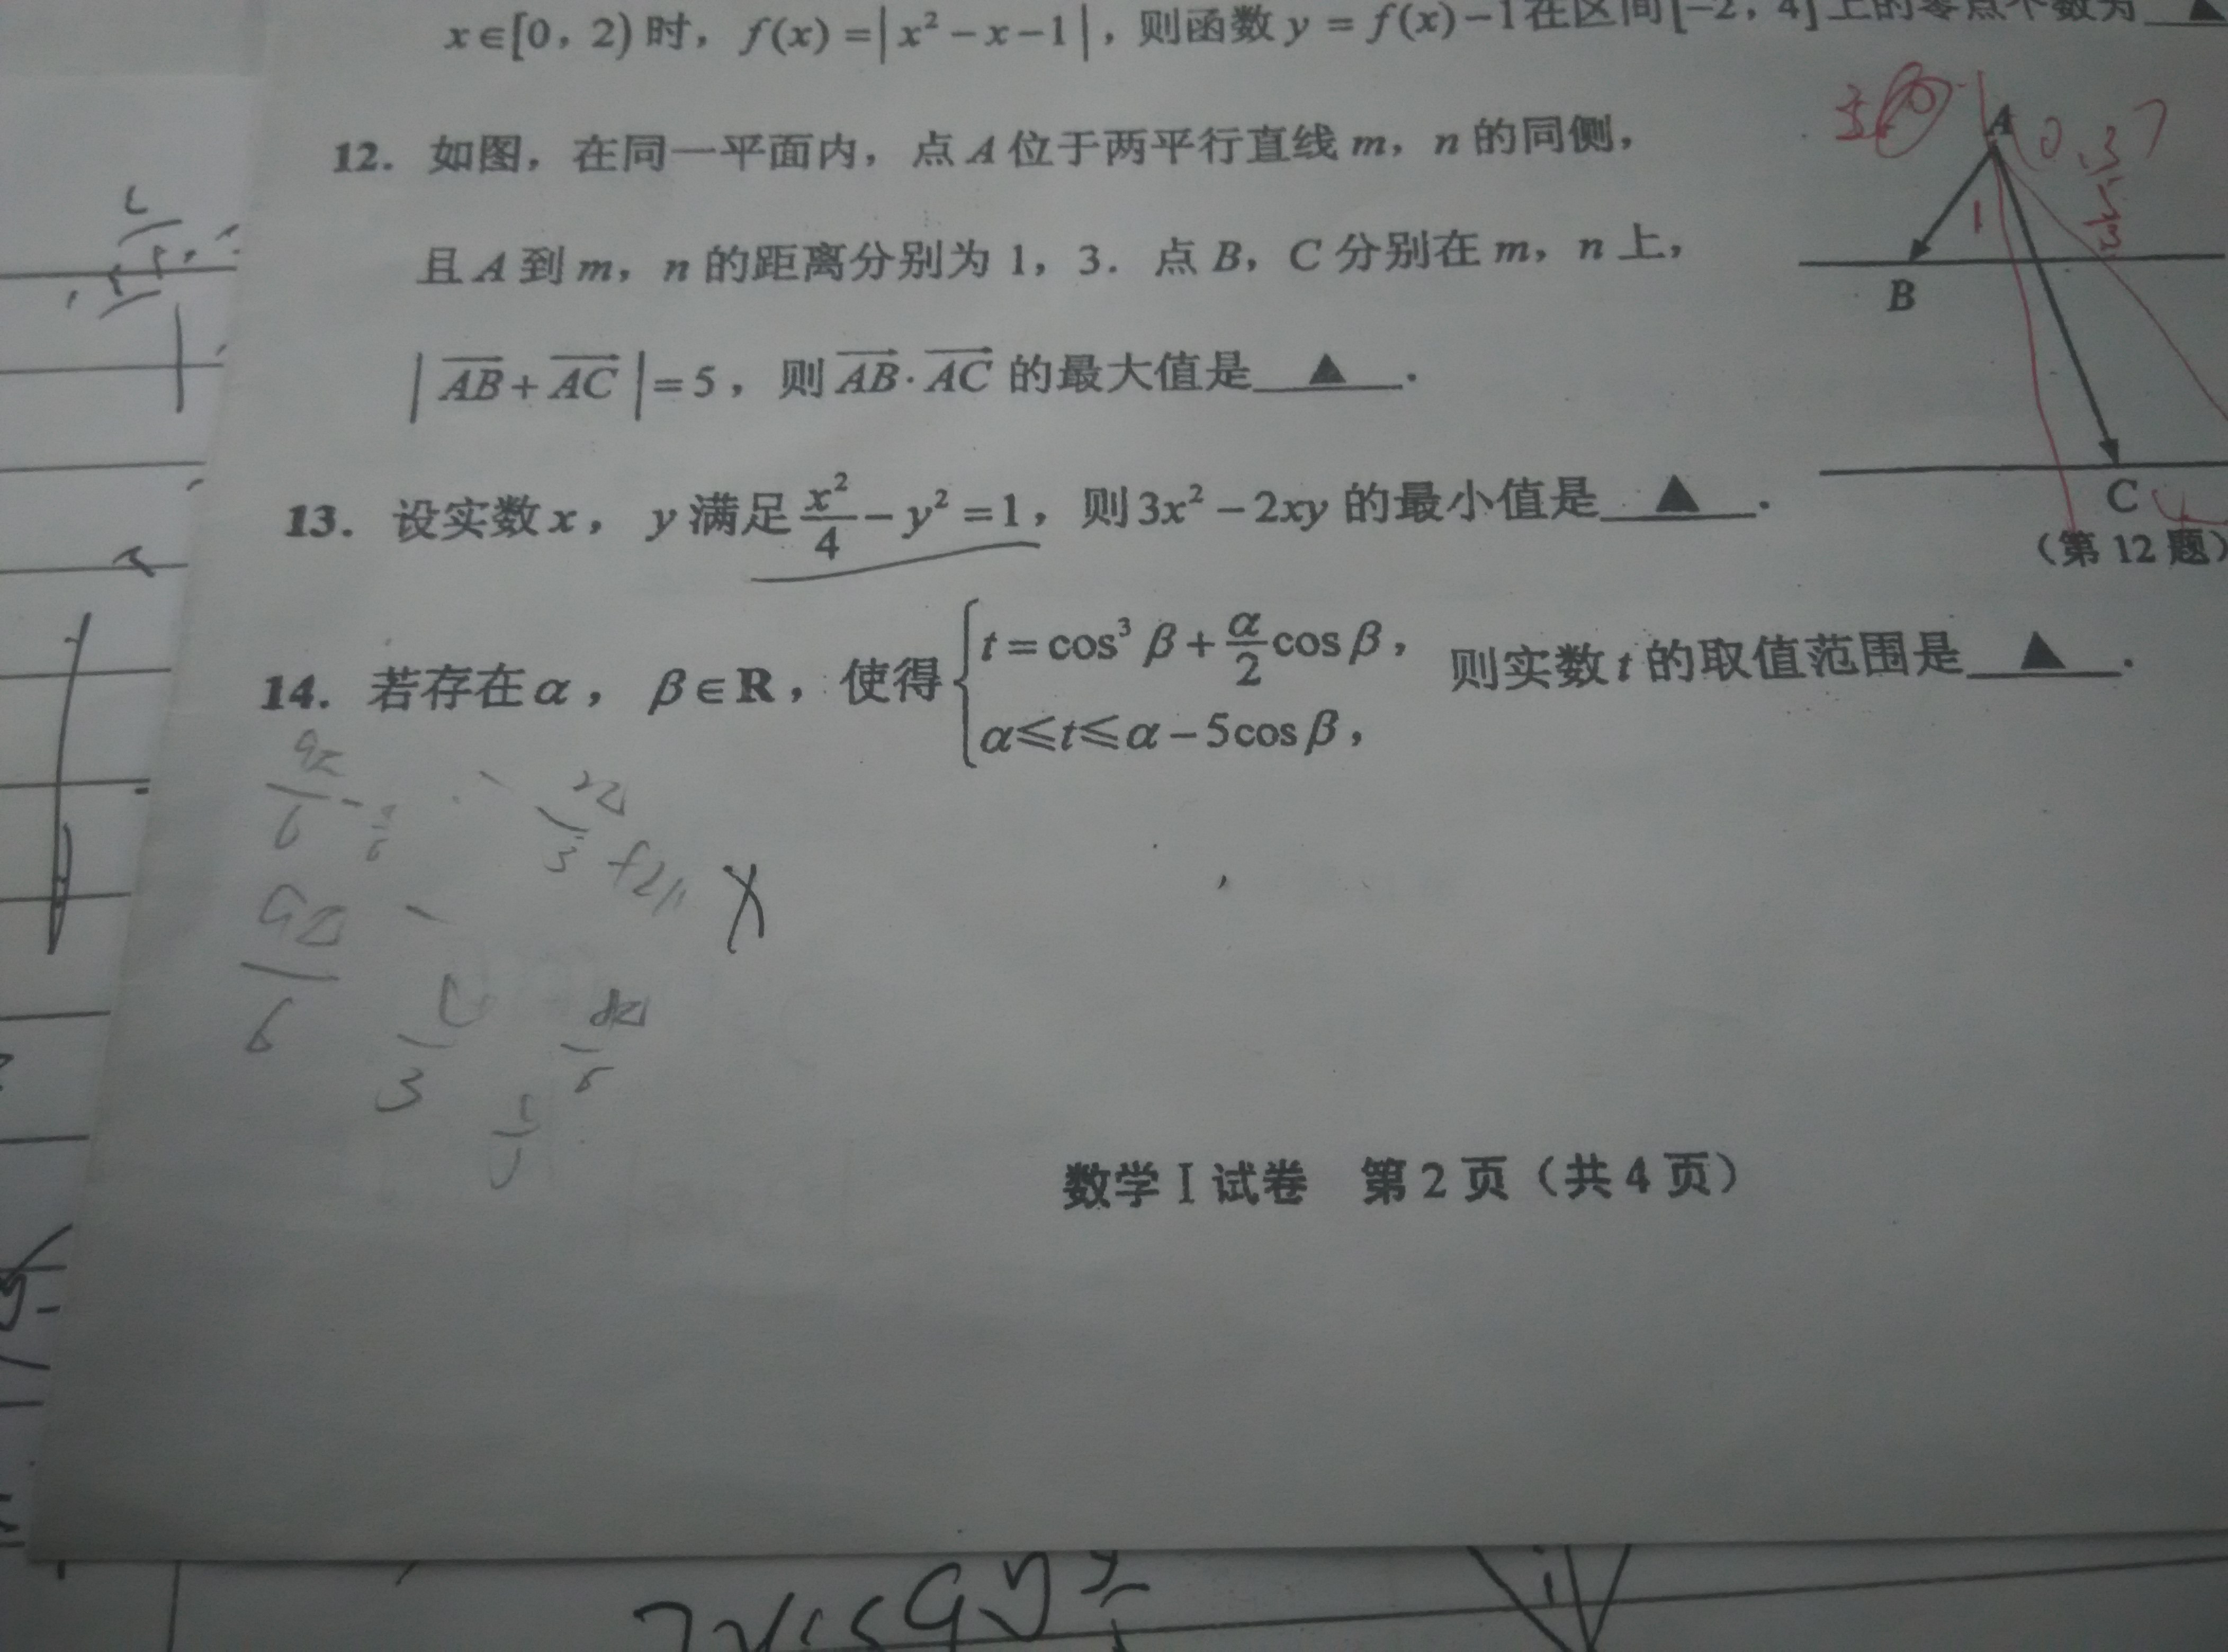 x∈[0，2)时，f(x)=|x²−x−1|，则函数y=f(x)−1在区间[−2，4]上的零点个数为▲
12．如图，在同一平面内，点A位于两平行直线m，n的同侧，
且A到m，n的距离分别为1，3．点B，C分别在m，n上，
|AB+AC|=5，则AB·AC的最大值是▲．
A
1
B
C
（第12题）
13．设实数x，y满足x²/4−y²=1，则3x²−2xy的最小值是▲．
14．若存在α，β∈R，使得{t=cos³β+α/2cosβ，α≤t≤α−5cosβ，则实数t的取值范围是▲．
数学Ⅰ试卷 第2页（共4页）